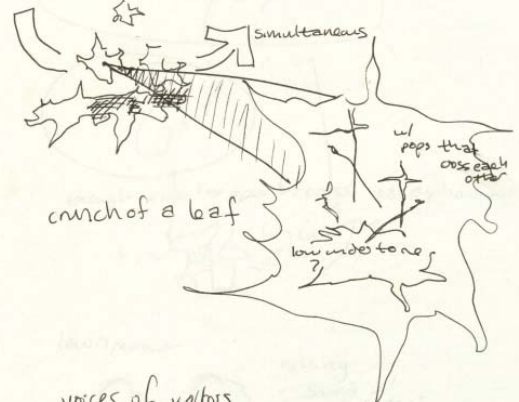 simultaneous
w/
pops that
cross each
other
crunch of a leaf
low undertone
?
voices of